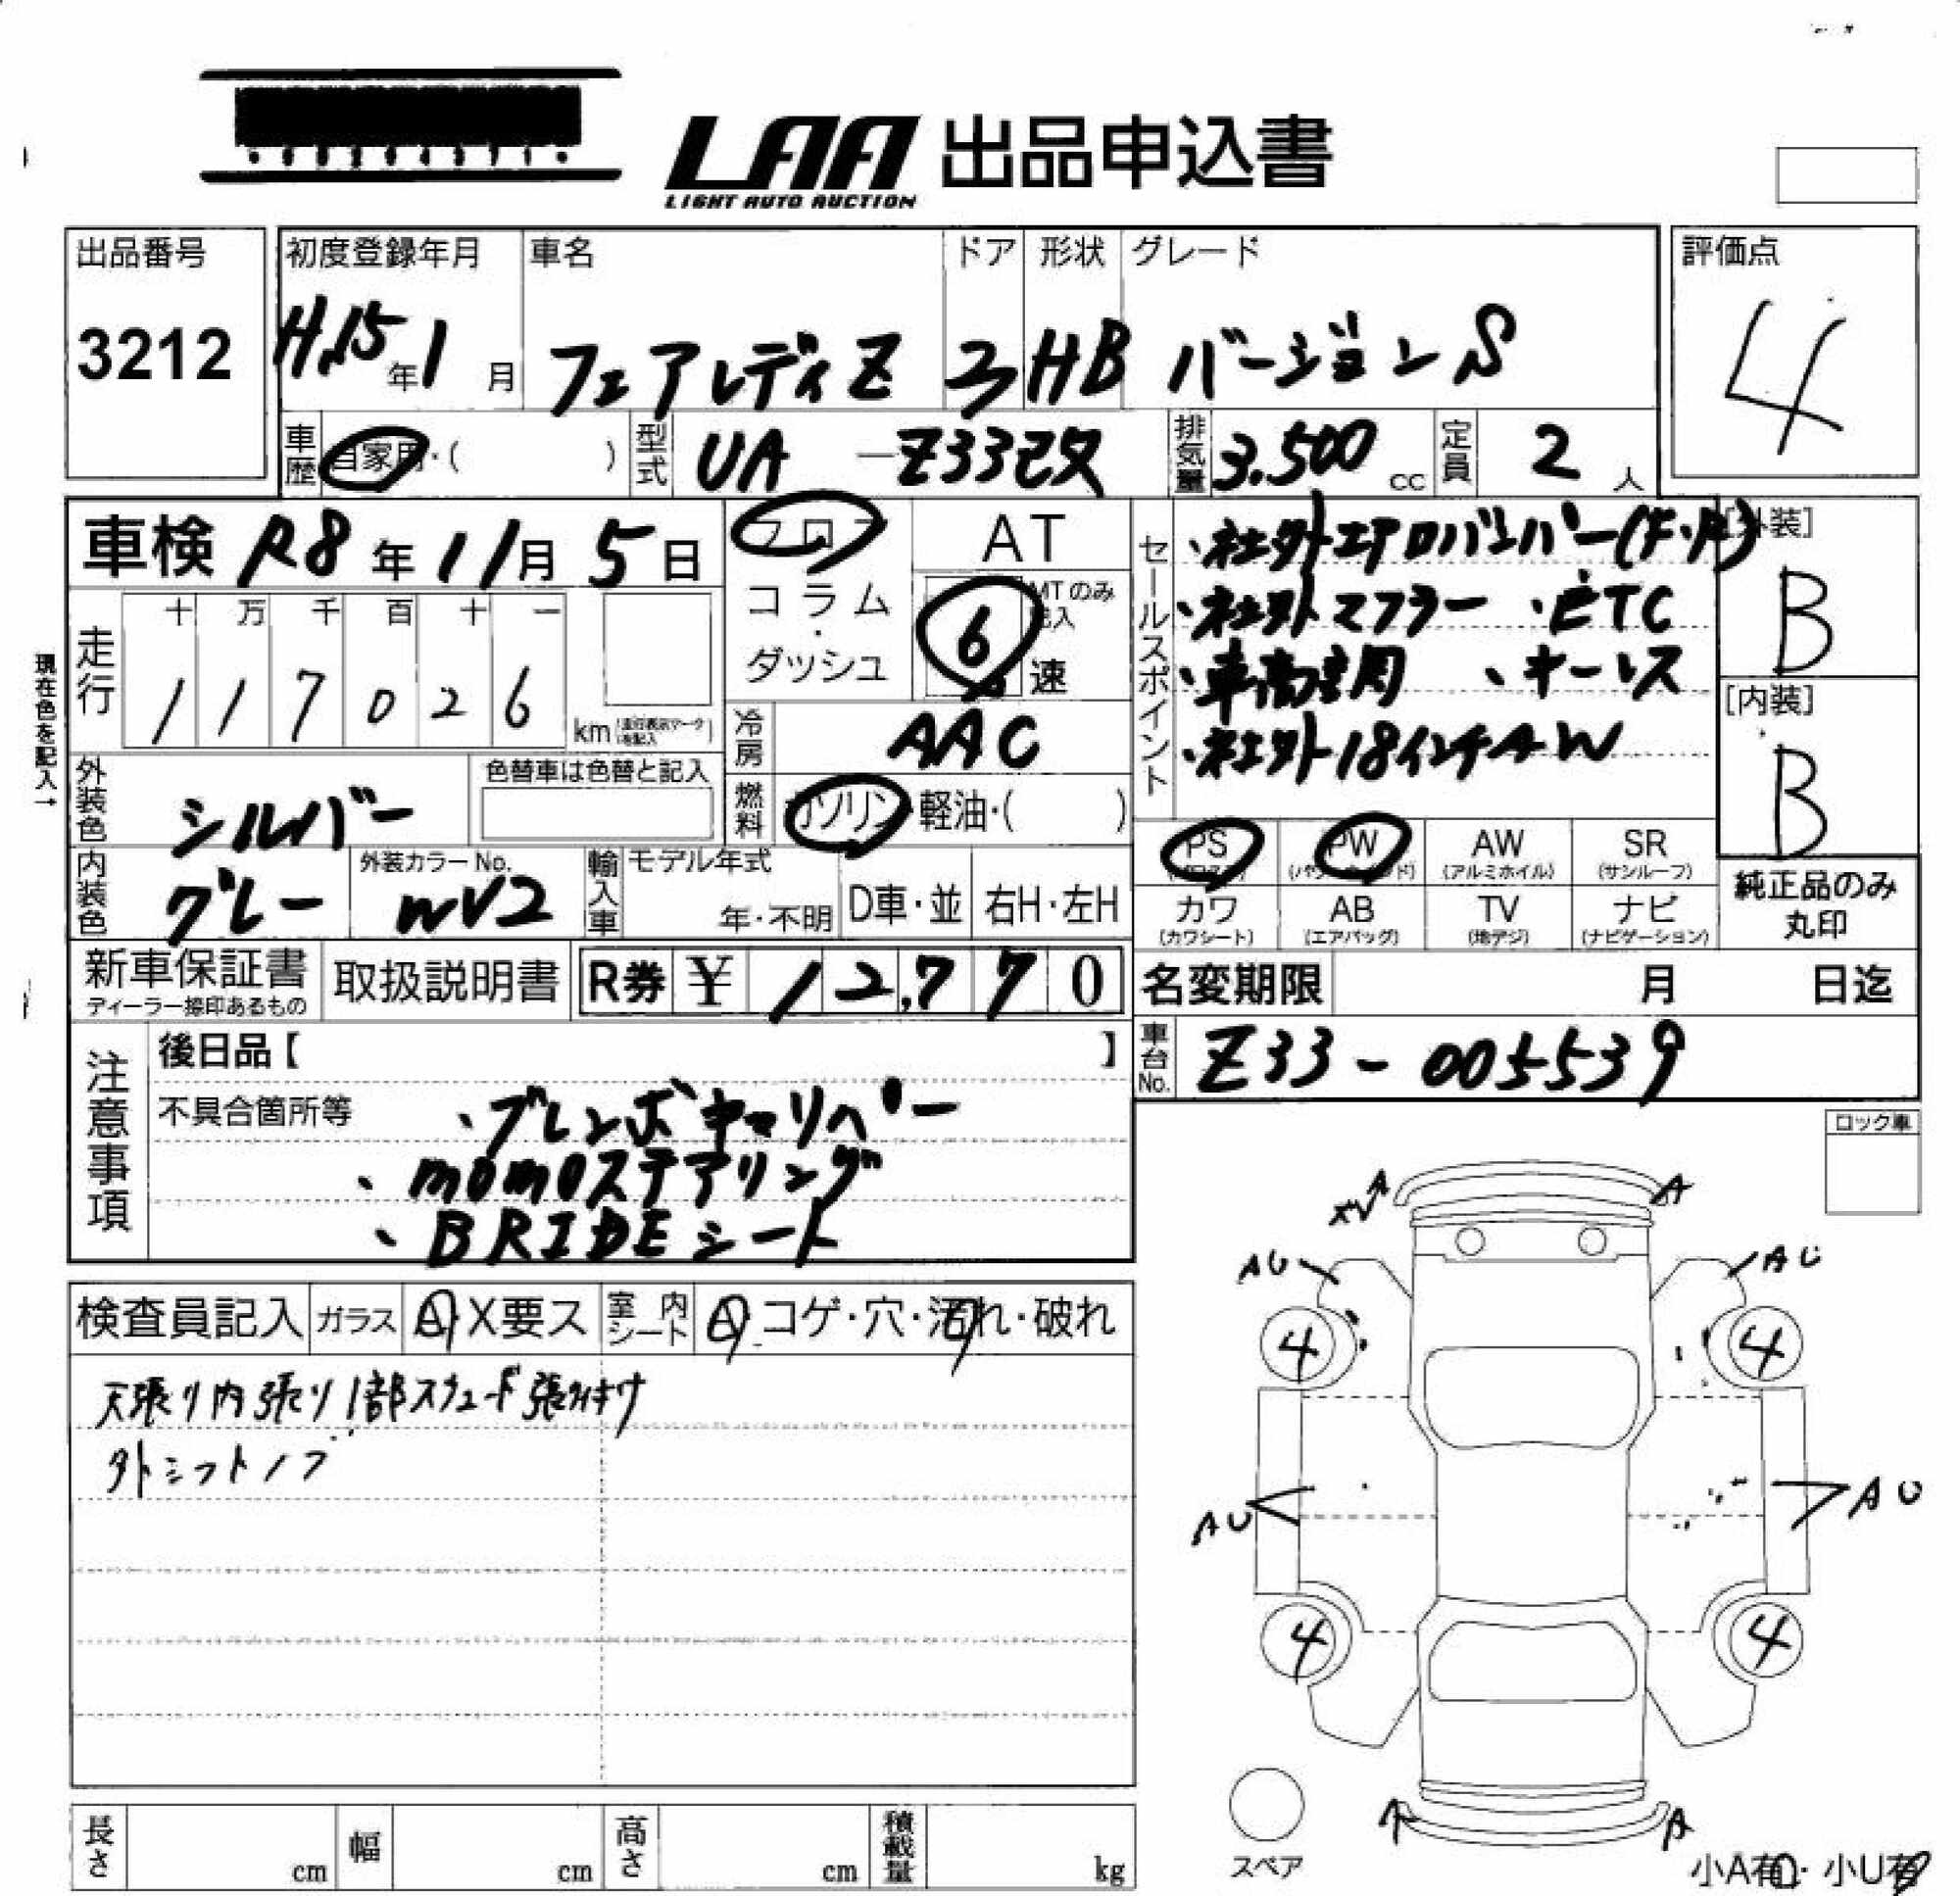 LAA 出品申込書
LIGHT AUTO AUCTION
出品番号 3212
初度登録年月 H.15年1月
車名 フェアレディZ
ドア 3
形状 HB
グレード バージョンS
評価点 4
車歴 自家用・( )
型式 UA-Z33改
排気量 3.500 cc
定員 2人
車検 R8年11月5日
フロア
コラム・ダッシュ
AT
6速 MTのみ記入
セールスポイント
・社外エアロバンパー(F・R)
・社外マフラー ・ETC
・車高調 ・キーレス
・社外18インチAW
[外装] B
[内装] B
現在色を記入→
走行 十 万 千 百 十 一
1 1 7 0 2 6 km (走行表示マークを記入)
冷房 AAC
燃料 ガソリン・軽油・( )
外装色 シルバー
色替車は色替と記入
内装色 グレー
外装カラーNo. WV2
輸入車 モデル年式 年・不明 D車・並 右H・左H
PS PW (パワーウインド) AW (アルミホイル) SR (サンルーフ)
カワ (カワシート) AB (エアバッグ) TV (地デジ) ナビ (ナビゲーション)
純正品のみ丸印
新車保証書 ディーラー捺印あるもの
取扱説明書
R券 ¥ 12,770
名変期限 月 日迄
車台No. Z33-005539
注意事項
後日品【 】
不具合箇所等
・ブレンボキャリパー
・momoステアリング
・BRIDEシート
ロック車
検査員記入 ガラス A X要ス 室内シート A コゲ・穴・汚れ・破れ
天張り内張り1部スウェード張付け
外シフトノブ
A A
AU AU
4 4
AU AU
4 4
A A
スペア
小A有・小U有
長さ cm 幅 cm 高さ cm 積載量 kg